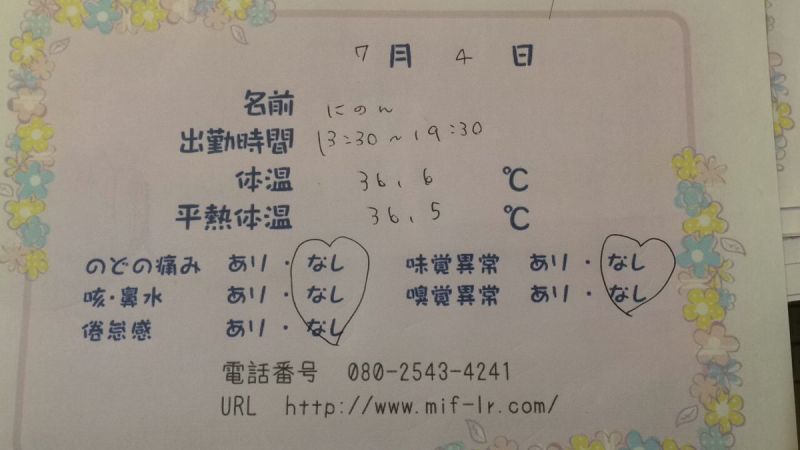 7月4日
名前 にのん
出勤時間 13:30～19:30
体温 36.6 ℃
平熱体温 36.5 ℃
のどの痛み あり・なし 味覚異常 あり・なし
咳・鼻水 あり・なし 嗅覚異常 あり・なし
倦怠感 あり・なし
電話番号 080-2543-4241
URL http://www.mif-lr.com/